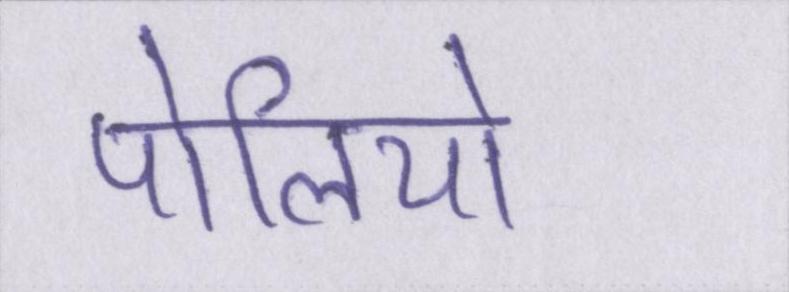 पोलियो